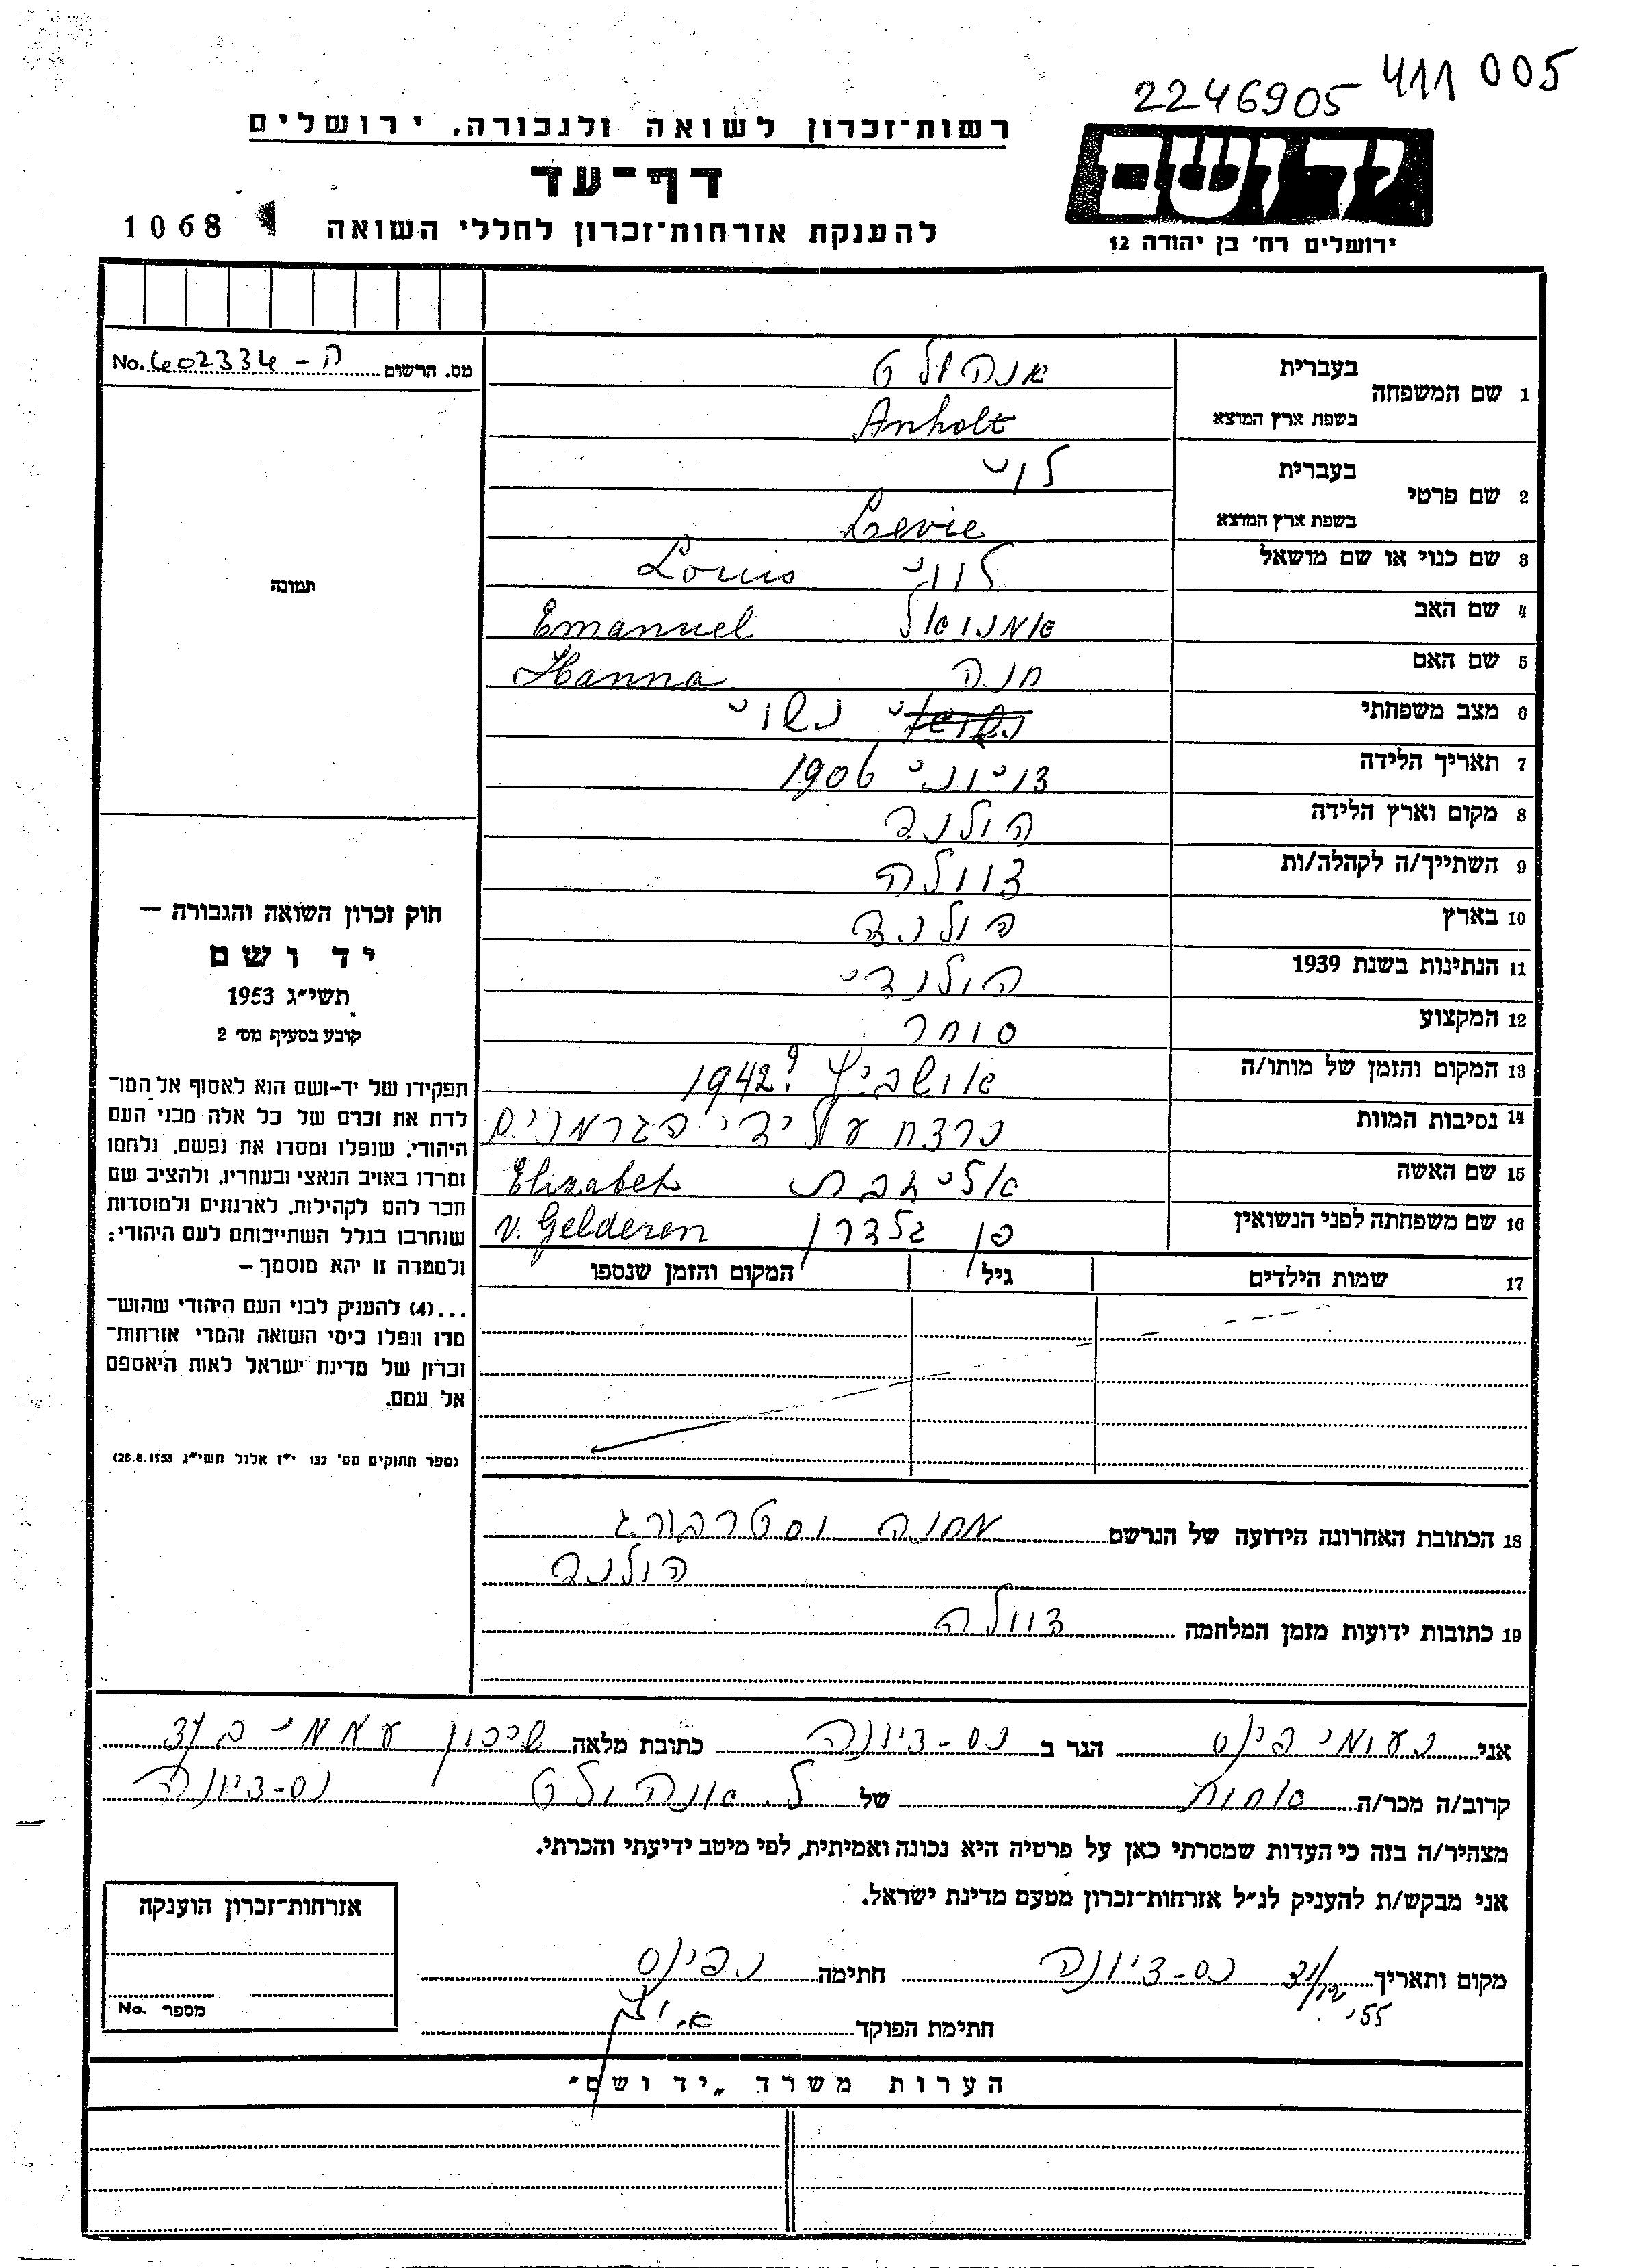 2246905 411 005
רשות־זכרון לשואה ולגבורה. ירושלים
יד ושם
דף־עד
ירושלים רח׳ בן יהודה 12
להענקת אזרחות־זכרון לחללי השואה 1068
מס. הרשום No. 402334 - ה
1 שם המשפחה בעברית אנהולט
בשפת ארץ המוצא Anholt
2 שם פרטי בעברית לוי
בשפת ארץ המוצא Levie
3 שם כנוי או שם מושאל לווי Louis
4 שם האב אמנואל Emanuel
5 שם האם חנה Hanna
6 מצב משפחתי נשוי
7 תאריך הלידה יוני 1906
8 מקום וארץ הלידה הולנד
9 השתייך/ה לקהלה/ות צוולה
10 בארץ הולנד
11 הנתינות בשנת 1939 הולנדי
12 המקצוע סוחר
13 המקום והזמן של מותו/ה אושביץ 1942?
14 נסיבות המוות נרצח על ידי הגרמנים
15 שם האשה אליזבת Elizabeh
16 שם משפחתה לפני הנשואין פן גלדרן v. Gelderen
17 שמות הילדים גיל המקום והזמן שנספו
18 הכתובת האחרונה הידועה של הנרשם מחנה וסטרבורג
הולנד
19 כתובות ידועות מזמן המלחמה צוולה
תמונה
חוק זכרון השואה והגבורה —
יד ושם
תשי״ג 1953
קובע בסעיף מס׳ 2
תפקידו של יד-ושם הוא לאסוף אל המו־
לדת את זכרם של כל אלה מבני העם
היהודי, שנפלו ומסרו את נפשם, נלחמו
ומרדו באויב הנאצי ובעוזריו, ולהציב שם
וזכר להם לקהילות, לארגונים ולמוסדות
שנחרבו בגלל השתייכותם לעם היהודי:
ולמטרה זו יהא מוסמך —
...(4) להעניק לבני העם היהודי שהוש־
מדו ונפלו בימי השואה והמרי אזרחות־
זכרון של מדינת ישראל לאות היאספם
אל עמם.
(ספר החוקים מס׳ 132 י״ז אלול תשי״ג 28.8.1953)
אני נעומי פינס הגר ב נס-ציונה כתובת מלאה שיכון עממי ב׳
קרוב/ה מכר/ה אחות של ל. אנהולט נס-ציונה
מצהיר/ה בזה כי העדות שמסרתי כאן על פרטיה היא נכונה ואמיתית, לפי מיטב ידיעתי והכרתי.
אני מבקש/ת להעניק לנ״ל אזרחות־זכרון מטעם מדינת ישראל.
מקום ותאריך נס-ציונה חתימה נ פינס
55׳
חתימת הפוקד
אזרחות־זכרון הוענקה
מספר No.
הערות משרד „יד ושם״